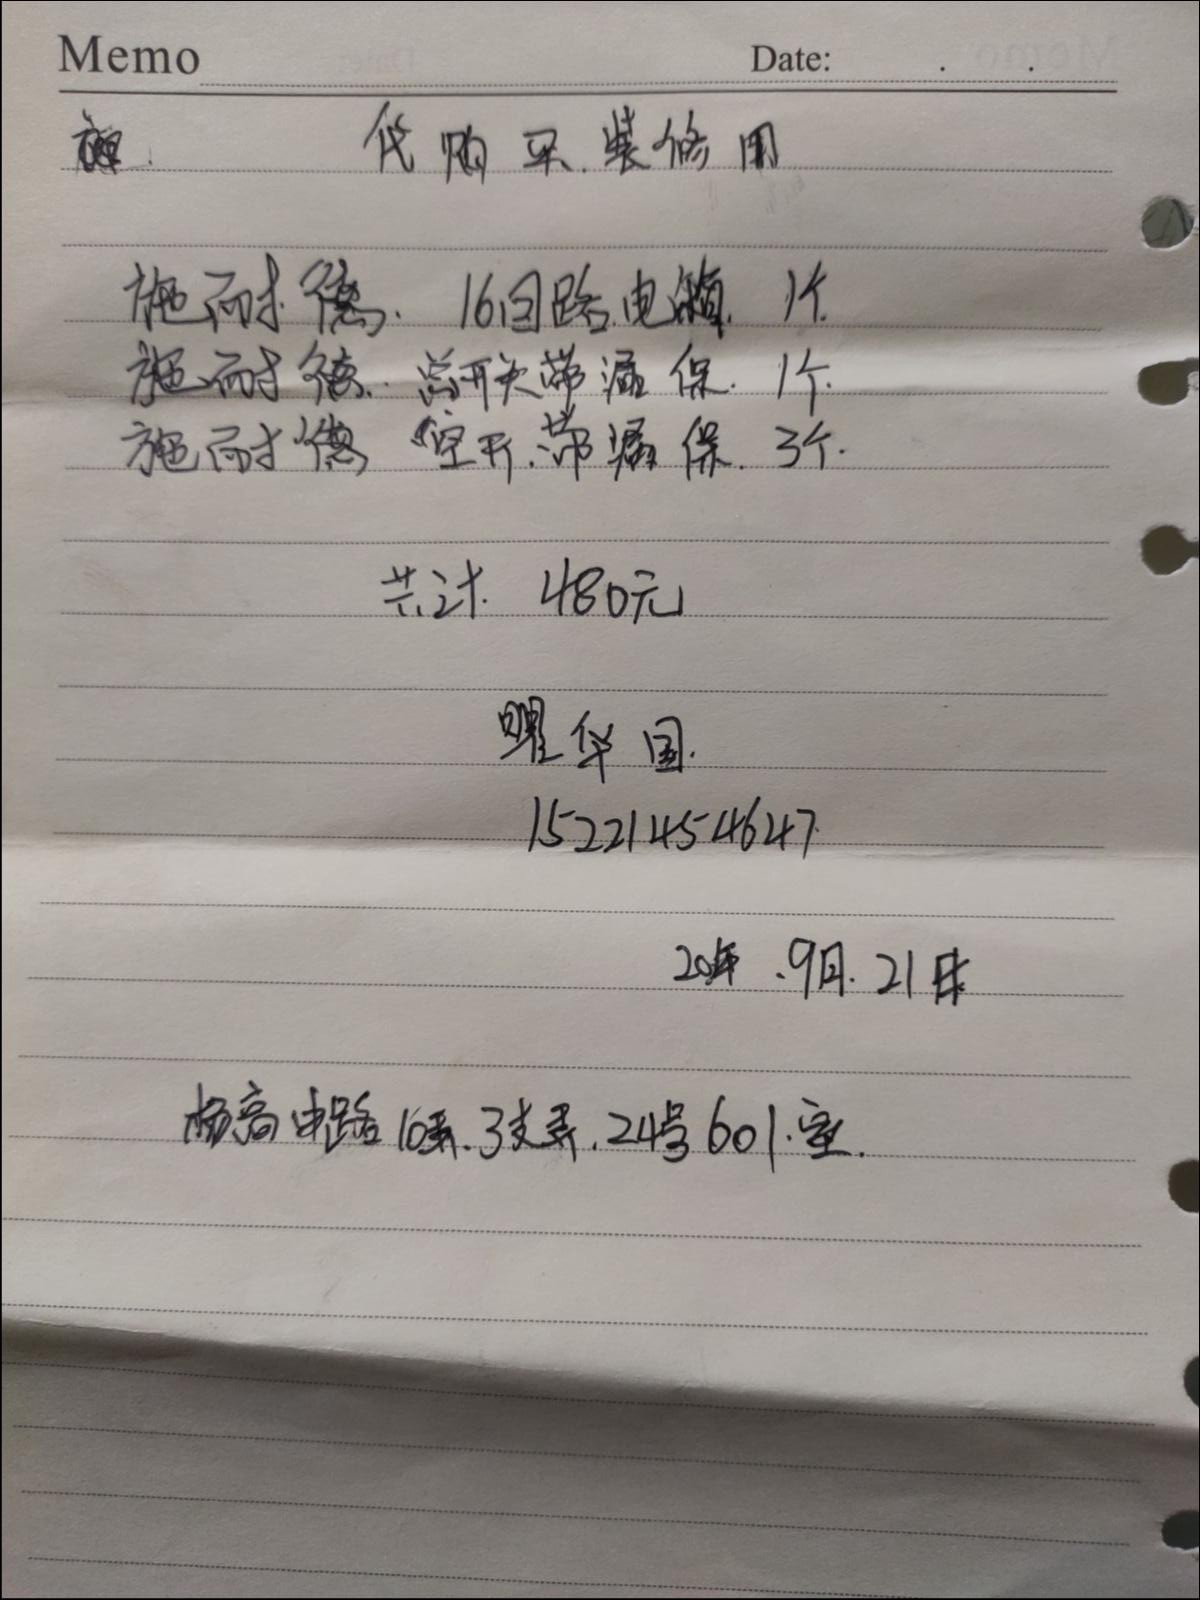 Memo Date: . .
代购买.装修用
施耐德. 16回路电箱. 1个.
施耐德. 总开关带漏保. 1个.
施耐德 空开.带漏保. 3个.
共计. 480元
华国.
15221454647.
20年.9月.21日
杨高中路10弄.3支弄.24号601.室.